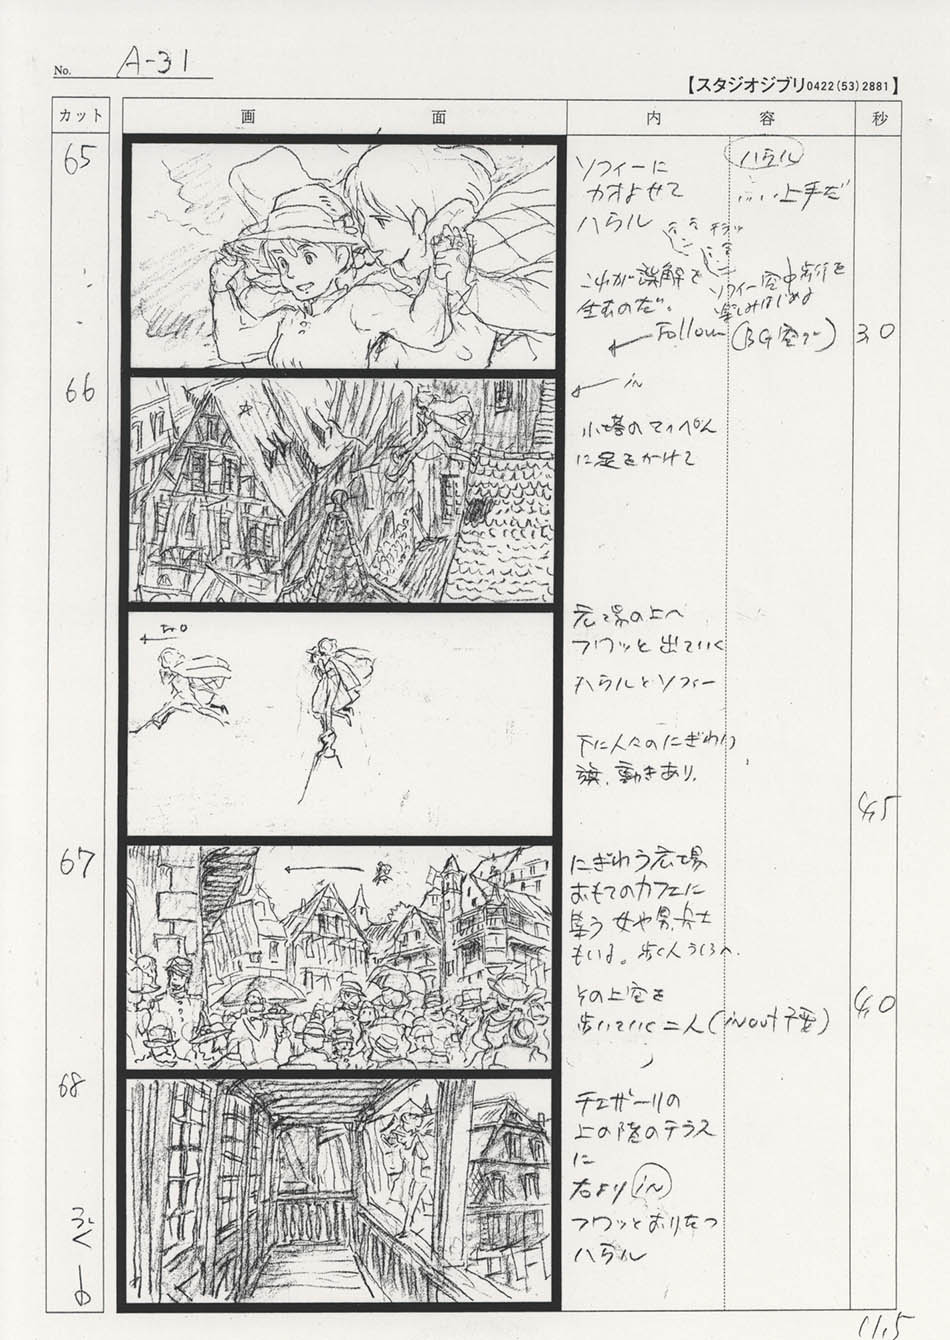 No. A-31
【スタジオジブリ0422(53)2881】
カット
画 面
内 容
秒
65
ソフィーに
カオよせて
ハウル
ハウル
…い上手だ
これが誤解を
生むのだ。
ソフィー空中歩行を
楽しみはじめる
Follow (BG空で)
3.0
66
in
小塔のてっぺん
に足をかけて
広場の上へ
フワッと出ていく
ハウルとソフィー
下に人々のにぎわい
旗、動きあり、
4.5
67
にぎわう広場
おもてのカフェに
集う女や男、兵士
もいる。歩く人うしろへ
その上空を
歩いていく二人(in out 不要)
4.0
68
チェザーリの
上の階のテラス
に
右より in
フワッとおりたつ
ハウル
つづく
11.5